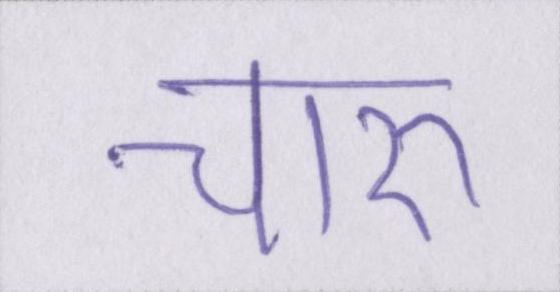 चारु